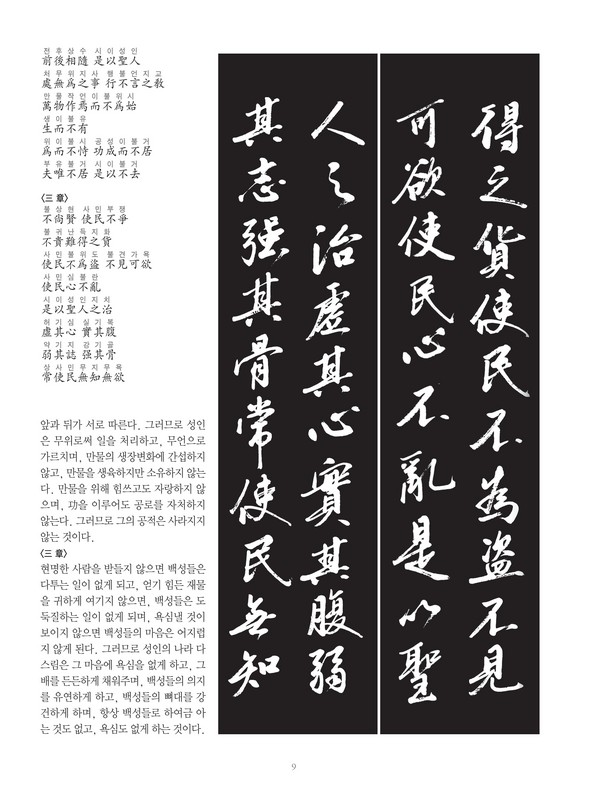 전후상수 시이성인
前後相隨 是以聖人
처무위지사 행불언지교
處無爲之事 行不言之敎
만물작언이불위시
萬物作焉而不爲始
생이불유
生而不有
위이불시 공성이불거
爲而不恃 功成而不居
부유불거 시이불거
夫唯不居 是以不去
〈三 章〉
불상현 사민부쟁
不尙賢 使民不爭
불귀난득지화
不貴難得之貨
사민불위도 불견가욕
使民不爲盜 不見可欲
사민심불란
使民心不亂
시이성인지치
是以聖人之治
허기심 실기복
虛其心 實其腹
약기지 강기골
弱其誌 强其骨
상사민무지무욕
常使民無知無欲
앞과 뒤가 서로 따른다. 그러므로 성인
은 무위로써 일을 처리하고, 무언으로
가르치며, 만물의 생장변화에 간섭하지
않고, 만물을 생육하지만 소유하지 않는
다. 만물을 위해 힘쓰고도 자랑하지 않
으며, 功을 이루어도 공로를 자처하지
않는다. 그러므로 그의 공적은 사라지지
않는 것이다.
〈三 章〉
현명한 사람을 받들지 않으면 백성들은
다투는 일이 없게 되고, 얻기 힘든 재물
을 귀하게 여기지 않으면, 백성들은 도
둑질하는 일이 없게 되며, 욕심낼 것이
보이지 않으면 백성들의 마음은 어지럽
지 않게 된다. 그러므로 성인의 나라 다
스림은 그 마음에 욕심을 없게 하고, 그
배를 든든하게 채워주며, 백성들의 의지
를 유연하게 하고, 백성들의 뼈대를 강
건하게 하며, 항상 백성들로 하여금 아
는 것도 없고, 욕심도 없게 하는 것이다.
得之貨使民不為盜不見
可欲使民心不亂是以聖
人之治虛其心實其腹弱
其志强其骨常使民無知
9